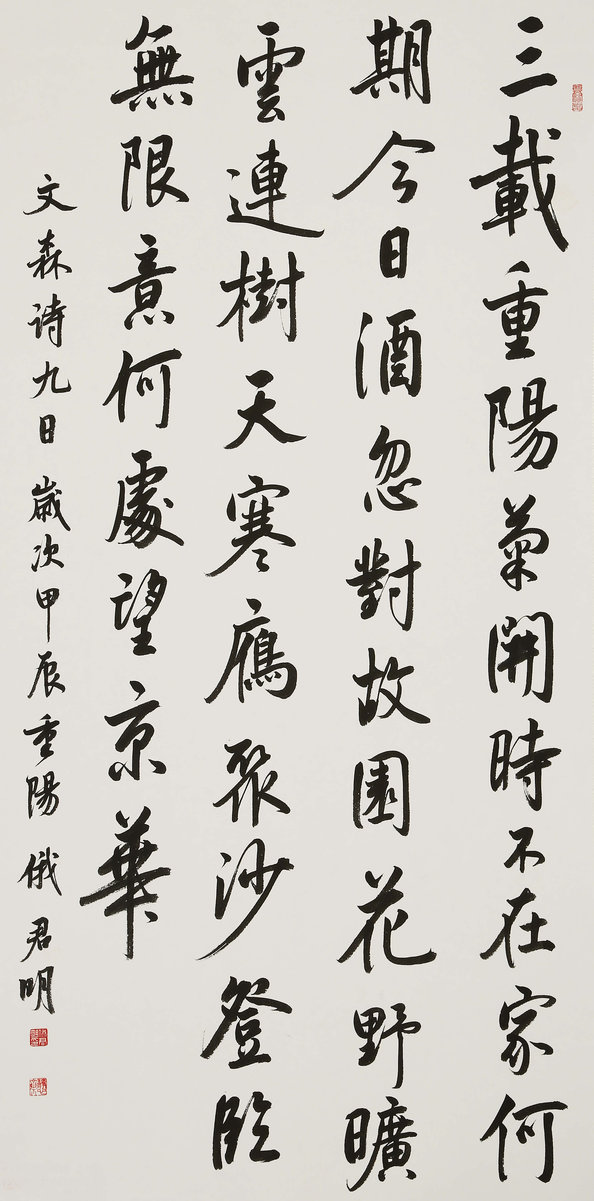 三載重陽菊開時不在家何
期今日酒忽對故園花野曠
雲連樹天寒鴈聚沙登臨
無限意何處望京華
文森诗九日 歲次甲辰重陽 俄君明